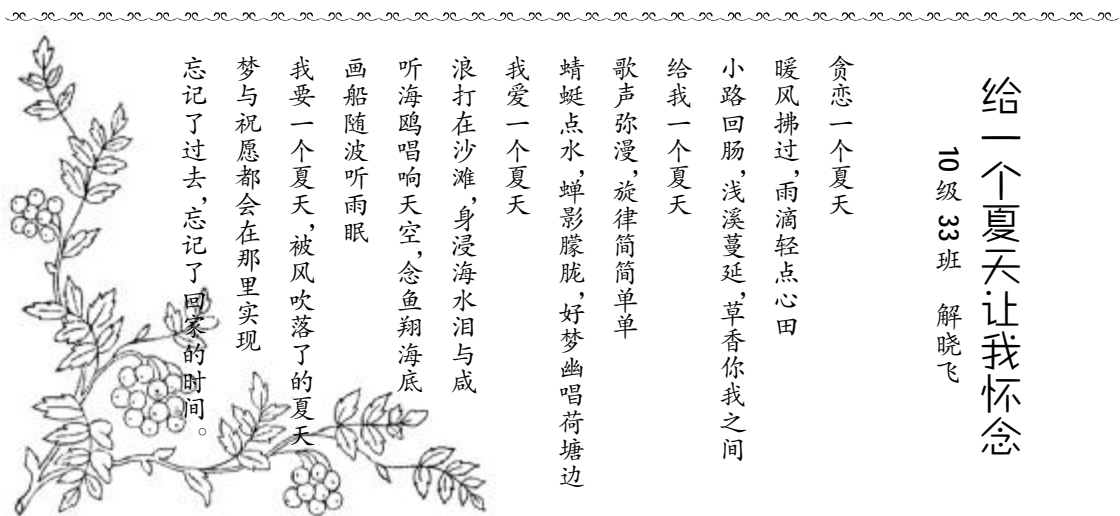 给一个夏天让我怀念
10级33班 解晓飞
贪恋一个夏天
暖风拂过,雨滴轻点心田
小路回肠,浅溪蔓延,草香你我之间
给我一个夏天
歌声弥漫,旋律简简单单
蜻蜓点水,蝉影朦胧,好梦幽唱荷塘边
我爱一个夏天
浪打在沙滩,身浸海水泪与咸
听海鸥唱响天空,念鱼翔海底
画船随波听雨眠
我要一个夏天,被风吹落了的夏天
梦与祝愿都会在那里实现
忘记了过去,忘记了回家的时间。